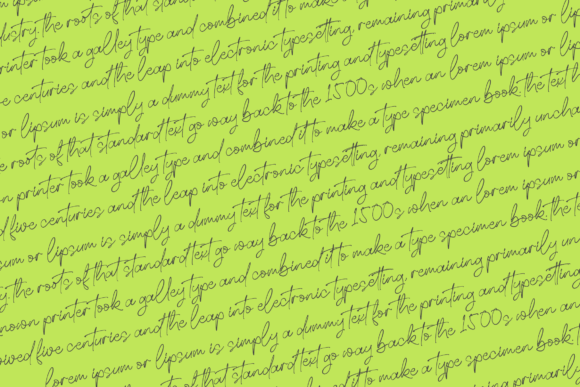 dustry. the roots of that standard
printer took a galley type and combined it to make a
e centuries and the leap into electronic typesetting, remaining primarily
or lipsum is simply a dummy text for the printing and typesetting lorem ipsum or lip
e roots of that standard text go way back to the 1500s when an lorem ipsum or lip
n printer took a galley type and combined it to make a type specimen book. the text
d five centuries and the leap into electronic typesetting, remaining primarily uncha
sum or lipsum is simply a dummy text for the printing and typesetting lorem ipsum or
y. the roots of that standard text go way back to the 1500s when an lorem ipsum or
nown printer took a galley type and combined it to make a type specimen book. the te
owed five centuries and the leap into electronic typesetting, remaining primarily un
lorem ipsum or lipsum is simply a dummy text for the printing and typesetting
of that standard text go way back to the 1500s when an
it to make a type specimen book.
primarily